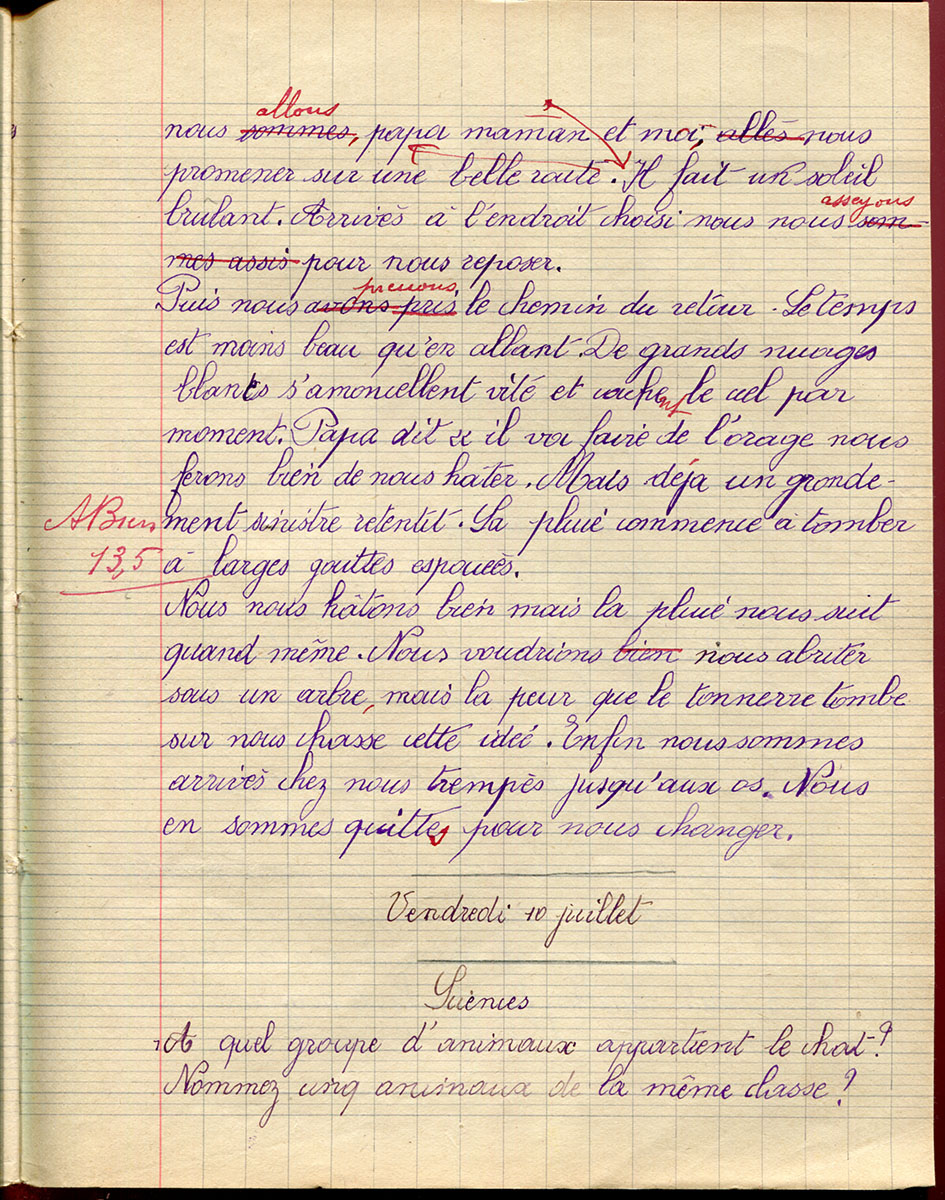 allons
nous sommes, papa maman et moi, allés nous
promener sur une belle route. Il fait un soleil
brulant. Arrivés à l'endroit choisi nous nous som-
asseyons
mes assis pour nous reposer.
prenons
Puis nous avons pris le chemin du retour. Le temps
est moins beau qu'en allant. De grands nuages
blancs s'amoncellent vite et cachent le ciel par
moment. Papa dit « il va faire de l'orage nous
ferons bien de nous hater. Mais déja un gronde-
ment sinistre retentit. La pluie commence à tomber
A Bien
13,5
à larges gouttes espacées.
Nous nous hâtons bien mais la pluie nous suit
quand même. Nous voudrions bien nous abriter
sous un arbre, mais la peur que le tonnerre tombe
sur nous chasse cette idée. Enfin nous sommes
arrivés chez nous trempés jusqu'aux os. Nous
en sommes quittes pour nous changer.
Vendredi 10 juillet
Sciences
A quel groupe d'animaux appartient le chat ?
Nommez cinq animaux de la même classe ?